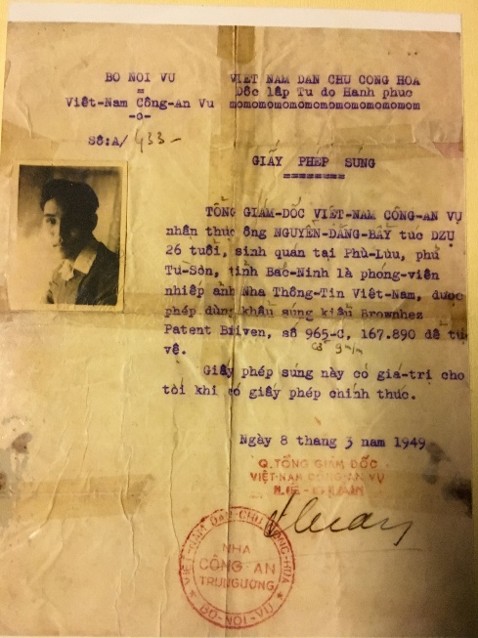 BO NOI VU
=
Việt-Nam Công-An Vu
-o-
Số:A/ 433-
VIET NAM DAN CHU CONG HOA
Dốc lập Tu do Hanh phuc
momomomomomomomomomomomom
GIẤY PHÉP SÚNG
========
TỔNG GIÁM-DỐC VIỆT-NAM CÔNG-AN VỤ
nhân thuc ông NGUYỄN-DĂNG-BẨY tuc DZỤ
26 tuổi, sinh quán tại Phù-Lúu, phủ
Tu-Sôn, tỉnh Bac-Ninh là phóng-viên
nhiếp ảnh Nha Thông-Tin Việt-Nam, duoc
phép dùng khẩu súng kiểu Brownhez
Patent, số 965-C, 167.890 dể tụ
vệ.
Giấy phép súng này có giá-trị cho
tôi khi có giấy phép chính thúc.
Ngày 8 tháng 3 nam 1949
Q.TỔNG GIÁM DỐC
VIỆT-NAM CÔNG-AN VỤ
VIỆT-NAM DAN-CHU CONG-HOA
NHA
CÔNG AN
TRUNG UONG
BO-NOI-VU